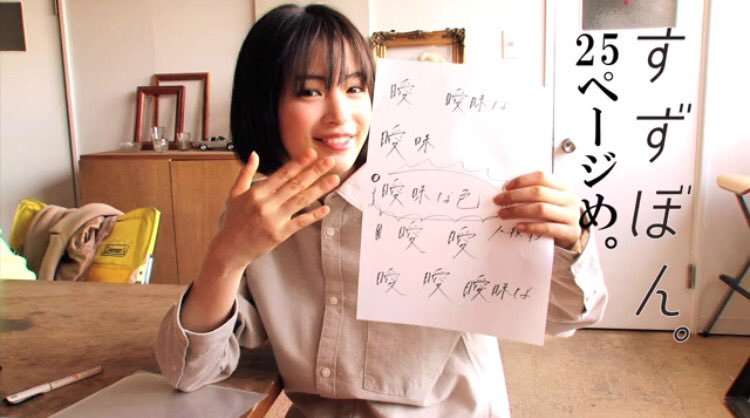 すずぼん。
25ページめ。
曖 曖昧な
曖昧
曖昧な色
曖 曖
曖 曖 曖昧な
Coleman